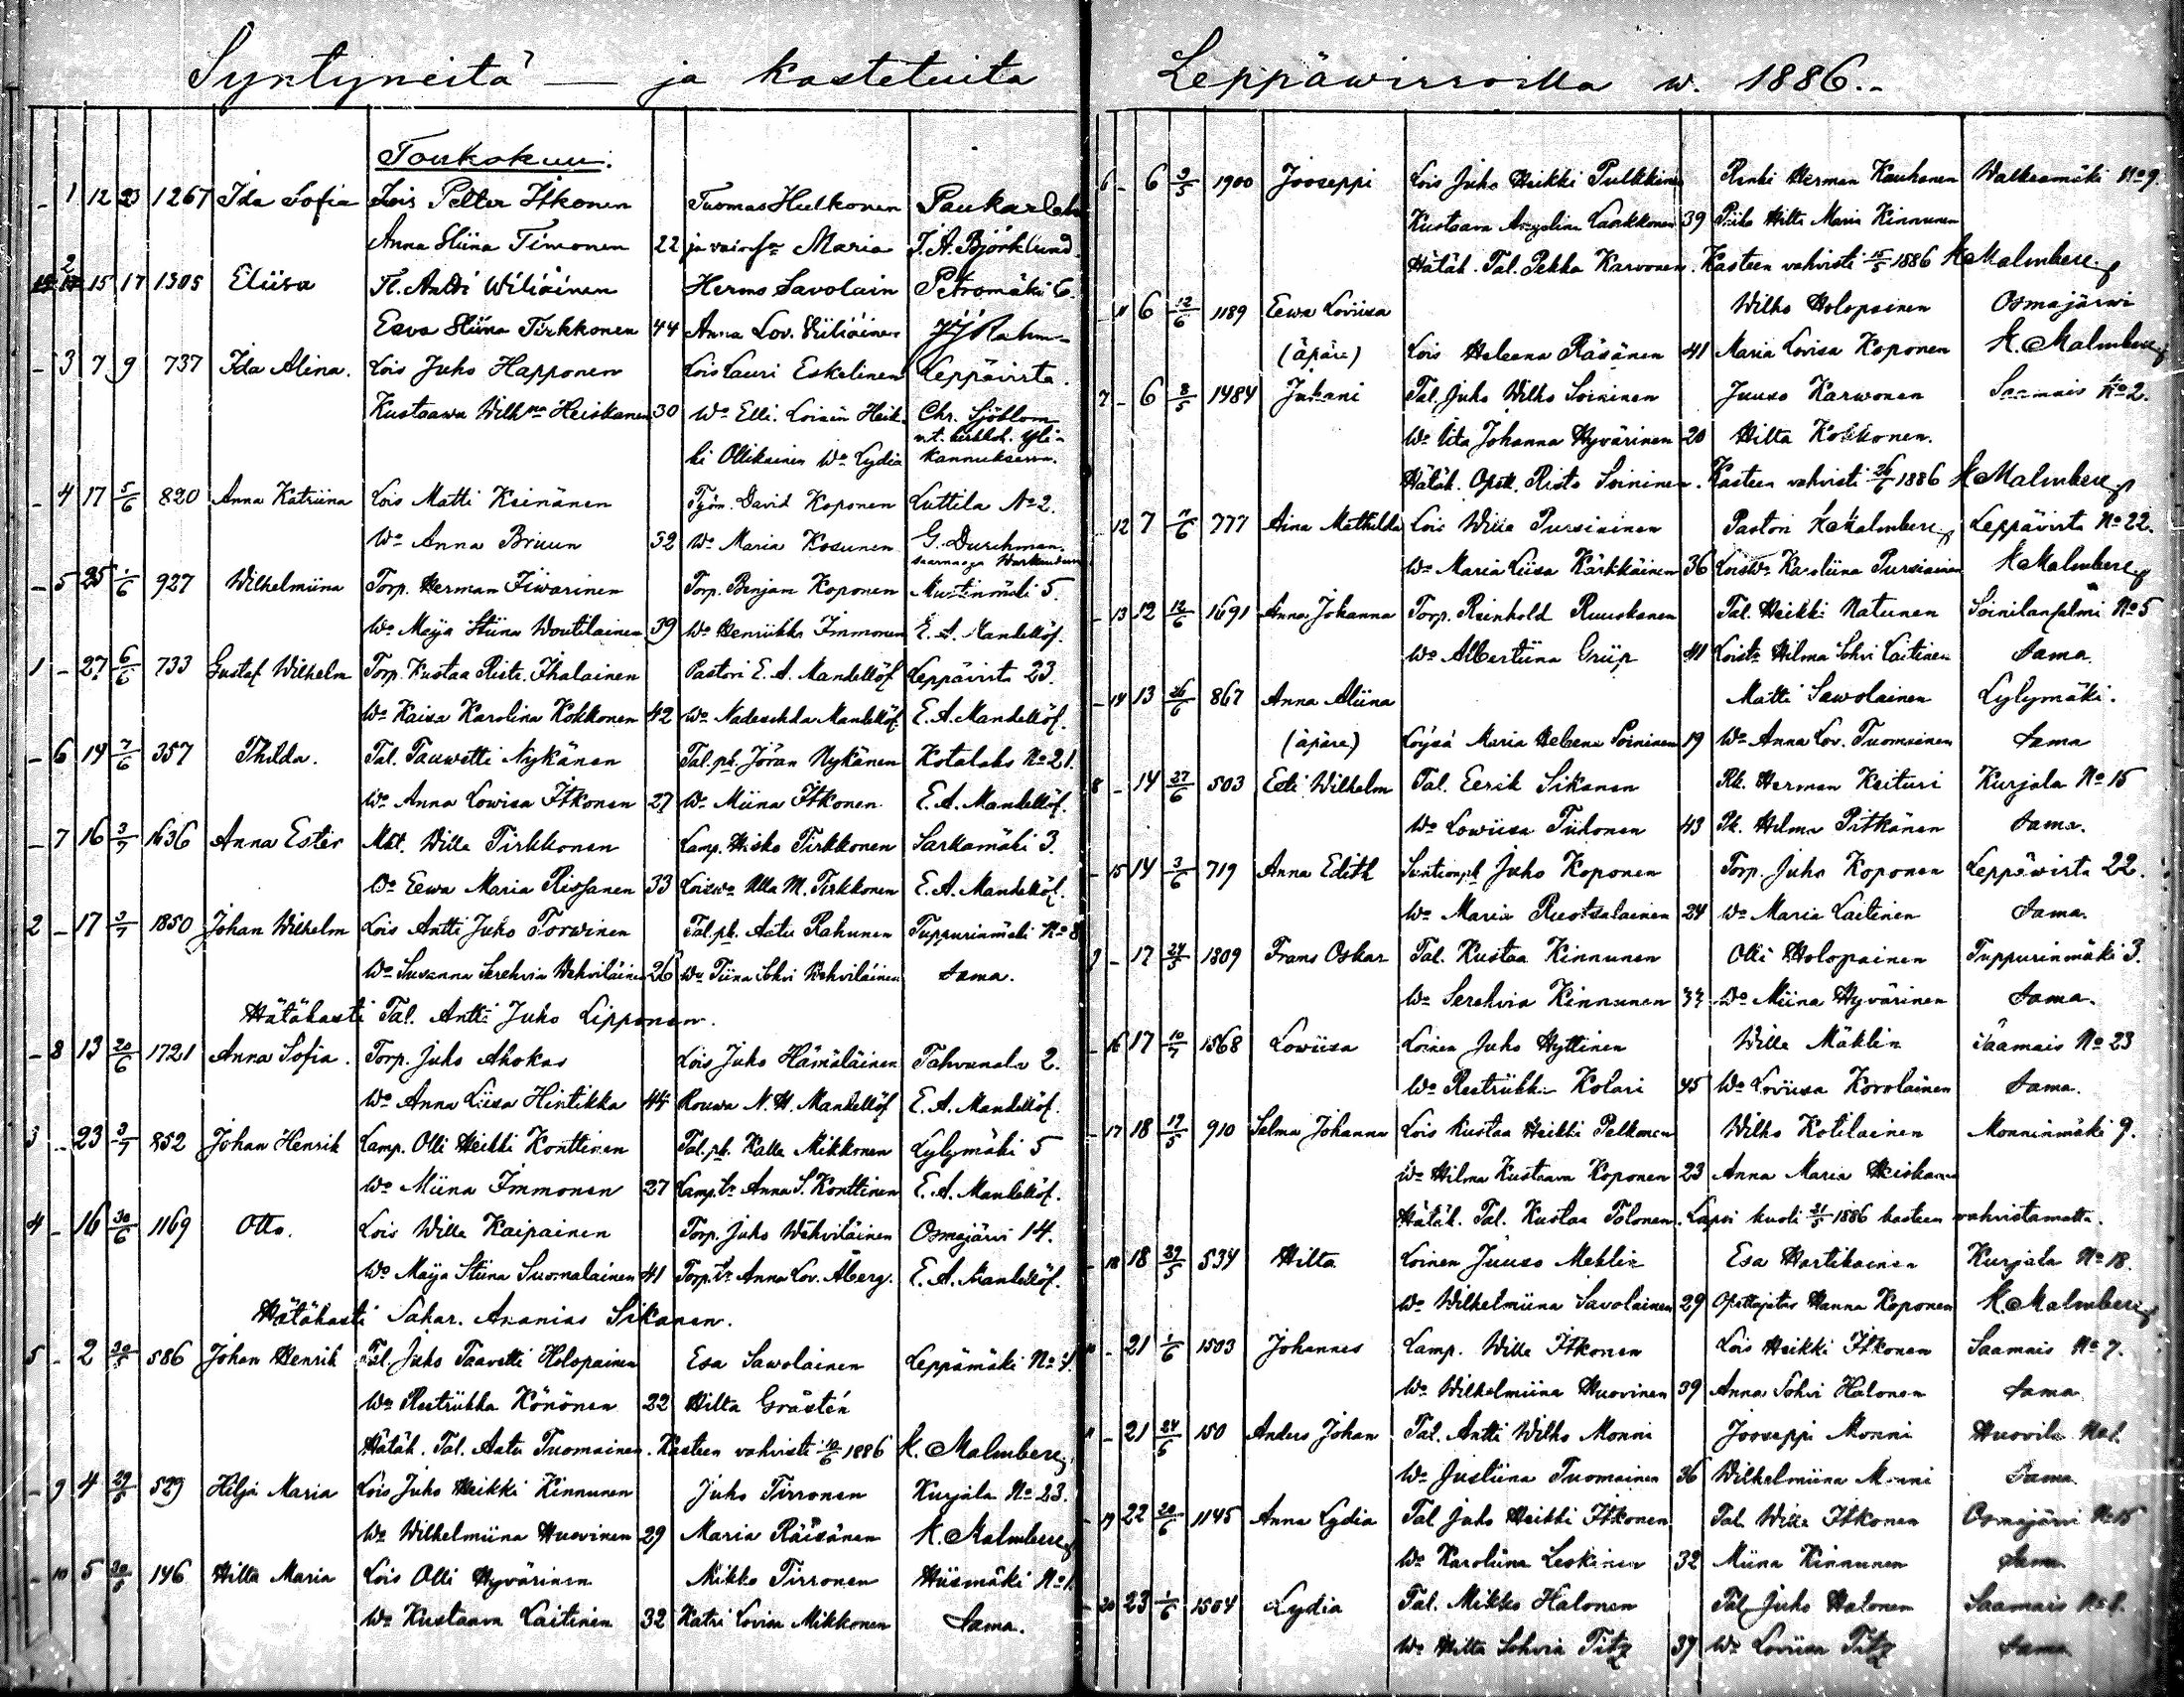 Syntyneitä — ja kastetuita
Toukokuu.
- 1 12 23 1267 Ida Sofia Lois Petter Itkonen Tuomas Hulkonen Paukarlaht
Anna Stiina Timonen 22 ja vaimo Maria J. A. Björklund
2 15 17 1305 Eliisa Tl. Antti Wiliäinen Herms Savolain Petromäki 6.
Eeva Stiina Tirkkonen 44 Anna Lov. Wiliäinen
- 3 7 9 737 Ida Alina. Lois Juho Happonen Lois Lauri Eskelinen Leppävirta.
Kustaawa Wilhna Heiskanen 30 Wo Elli. Loisin Heik- Chr. Sjöblom
v.t. kirkkoh. Yli-
ki Ollikainen Wo Lydia Kannuksessa.
- 4 17 5/6 820 Anna Katriina Lois Matti Keinänen Työm. David Koponen Luttila No 2.
Wo Anna Bruun 32 Wo Maria Kosunen G. Durchman.
saarnaaja Warkauden
- 5 25 1/6 927 Wilhelmiina Torp. Herman Iiwarinen Torp. Benjam Koponen Mustinmäki 5.
Wo Maija Stiina Woutilainen 39 Wo Henriikka Immonen E. A. Mandellöf.
1 - 27 6/6 733 Gustaf Wilhelm Torp. Kustaa Risto Ihalainen Pastori E. A. Mandellöf Leppävirta 23.
Wo Kaisa Karolina Kokkonen 42 Wo Nadeschda Mandellöf. E. A. Mandellöf.
- 6 14 7/6 357 Thilda. Tal. Taavetti Nykänen Tal.pk. Jöran Nykänen Kotalahs No 21.
Wo Anna Lowisa Itkonen 27 Wo Miina Itkonen E. A. Mandellöf.
- 7 16 3/7 1636 Anna Ester Mkt. Wille Tirkkonen Lamp. Hisko Tirkkonen Sarkamäki 3.
Wo Eewa Maria Rissanen 33 Loiswo Ulla M. Tirkkonen E. A. Mandellöf.
2 - 17 3/7 1850 Johan Wilhelm Lois Antti Juho Torwinen Tal.pk. Aatu Rahunen Tuppurinmäki No 8
Wo Susanna Serehvia Wehviläinen 26 Wo Tiina Sohvi Wehviläinen Sama.
Hätäkasti Tal. Antti Juho Lipponen.
- 8 13 20/6 1721 Anna Sofia. Torp. Juho Ahokas Lois Juho Hämäläinen Tahvanala 2.
Wo Anna Liisa Hintikka 44 Rouwa N. H. Mandellöf E. A. Mandellöf.
3 - 23 3/7 852 Johan Henrik Lamp. Olli Heikki Konttinen Tal.pk. Kalle Mikkonen Lylymäki 5
Wo Miina Immonen 27 Lamp.tr Anna S. Konttinen E. A. Mandellöf.
4 - 16 30/6 1169 Otto. Lois Wille Kaipainen Torp. Juho Wehviläinen Osmajärvi 14.
Wo Maija Stiina Suomalainen 41 Torp.tr Anna Lov. Åberg. E. A. Mandellöf.
Hätäkasti Sahar. Ananias Sikanen.
5 - 2 30/5 586 Johan Henrik Tal. Juho Taavetti Holopainen Esa Sawolainen Leppämäki No
Wo Reetriikka Könönen 22 Hilta Grästén
Hätäk. Tal. Aatu Tuomainen. Kasteen vahvisti 10/6 1886 K. Malmberg
- 9 4 29/5 529 Hilja Maria Lois Juho Heikki Kinnunen Juho Tirronen Kurjala No 23.
Wo Wilhelmiina Huovinen 29 Maria Räisänen K. Malmberg
- 10 5 30/5 146 Hilta Maria Lois Olli Hyvärinen Mikko Tirronen Hiismäki No 1.
Wo Kustaava Laitinen 32 Katri Lovisa Mikkonen Sama.
Leppäwirroilla w. 1886.-
6 - 6 9/5 1900 Jooseppi Lois Juho Heikki Pulkkinen Renki Herman Kauhanen Walkeamäki No 9.
Kustaava Angelina Laukkonen 39 Piika Hilta Maria Kinnunen
Hätäk. Tal. Pekka Karvonen. Kasteen vahvisti 15/5 1886 K Malmberg
- 11 6 12/6 1189 Eewa Loviisa Wilho Holopainen Osmajärwi
(äpäre) Lois Helena Räsänen 41 Maria Lovisa Koponen K. Malmberg
7 - 6 8/5 1484 Juhani Tal. Juho Wilho Soininen Juuso Karwonen Saamais No 2.
Wo Iita Johanna Hyvärinen 20 Hilta Kokkonen.
Hätäk. Opett. Risto Soininen. Kasteen vahvisti 26/6 1886 K Malmberg
- 12 7 777 Aina Mathilda Lois Wille Pursiainen Pastori K Malmberg Leppävirta No 22.
Wo Maria Liisa Kärkkäinen 36 Loiswo Karoliina Pursiainen K Malmberg
- 13 12 12/6 1691 Anna Johanna Torp. Reinhold Ruuskanen Tal. Heikki Natunen Soinilansalmi No 5
Wo Albertiina Griip 41 Loistr Hilma Sohvi Laitinen Sama.
- 14 13 26/6 867 Anna Aliina Matti Sawolainen Lylymäki.
(äpäre) Loysä Maria Helena Soininen 19 Wo Anna Lov. Tuomainen Sama
8 - 14 27/6 503 Eeli Wilhelm Tal. Eerik Sikanen Rk. Herman Keituri Kurjala No 15
Wo Lowiisa Tiihonen 43 Pk. Hilma Pitkänen Sama.
- 15 14 3/6 719 Anna Edith Suntionpk Juho Koponen Torp. Juho Koponen Leppävirta 22.
Wo Maria Ruotsalainen 24 Wo Maria Laitinen Sama.
9 - 17 24/5 1809 Frans Oskar Tal. Kustaa Kinnunen Olli Holopainen Tuppurinmäki 3.
Wo Serehvia Kinnunen 33 Wo Miina Hyvärinen Sama.
- 16 17 10/7 1568 Lowiisa Loinen Juho Hyttinen Wille Mäklin Saamais No 23
Wo Reetriikka Kolari 45 Wo Loviisa Korolainen Sama.
- 17 18 19/5 910 Selma Johanna Lois Kustaa Heikki Pelkonen Wilho Kotilainen Monninmäki 9.
Wo Hilma Kustaava Koponen 23 Anna Maria Heiskanen
Hätäk. Tal. Kustaa Tolonen. Lapsi kuoli 21/5 1886 kasteen vahvistamatta.
- 18 18 29/5 534 Hilta Loinen Juuso Meklin Esa Hartikainen Kurjala No 18.
Wo Wilhelmiina Savolainen 29 Opettajatar Hanna Koponen K. Malmberg
10 - 21 1/6 1503 Johannes Lamp. Wille Itkonen Lois Heikki Itkonen Saamais No 7.
Wo Wilhelmiina Huovinen 39 Anna Sohvi Halonen Sama
11 - 21 24/6 150 Anders Johan Tal. Antti Wilho Monni Jooseppi Monni Huovila No 1.
Wo Justiina Tuomainen 36 Wilhelmiina Monni Sama
- 19 22 20/6 1145 Anna Lydia Tal. Juho Heikki Itkonen Tal. Wille Itkonen Osmajärvi No 15
Wo Karoliina Leskinen 32 Miina Kinnunen Sama
- 20 23 1/6 1504 Lydia Tal. Mikko Halonen Tal. Juho Halonen Saamais No 8.
Wo Hilta Sohvia Titz 37 Wo Loviisa Titz Sama